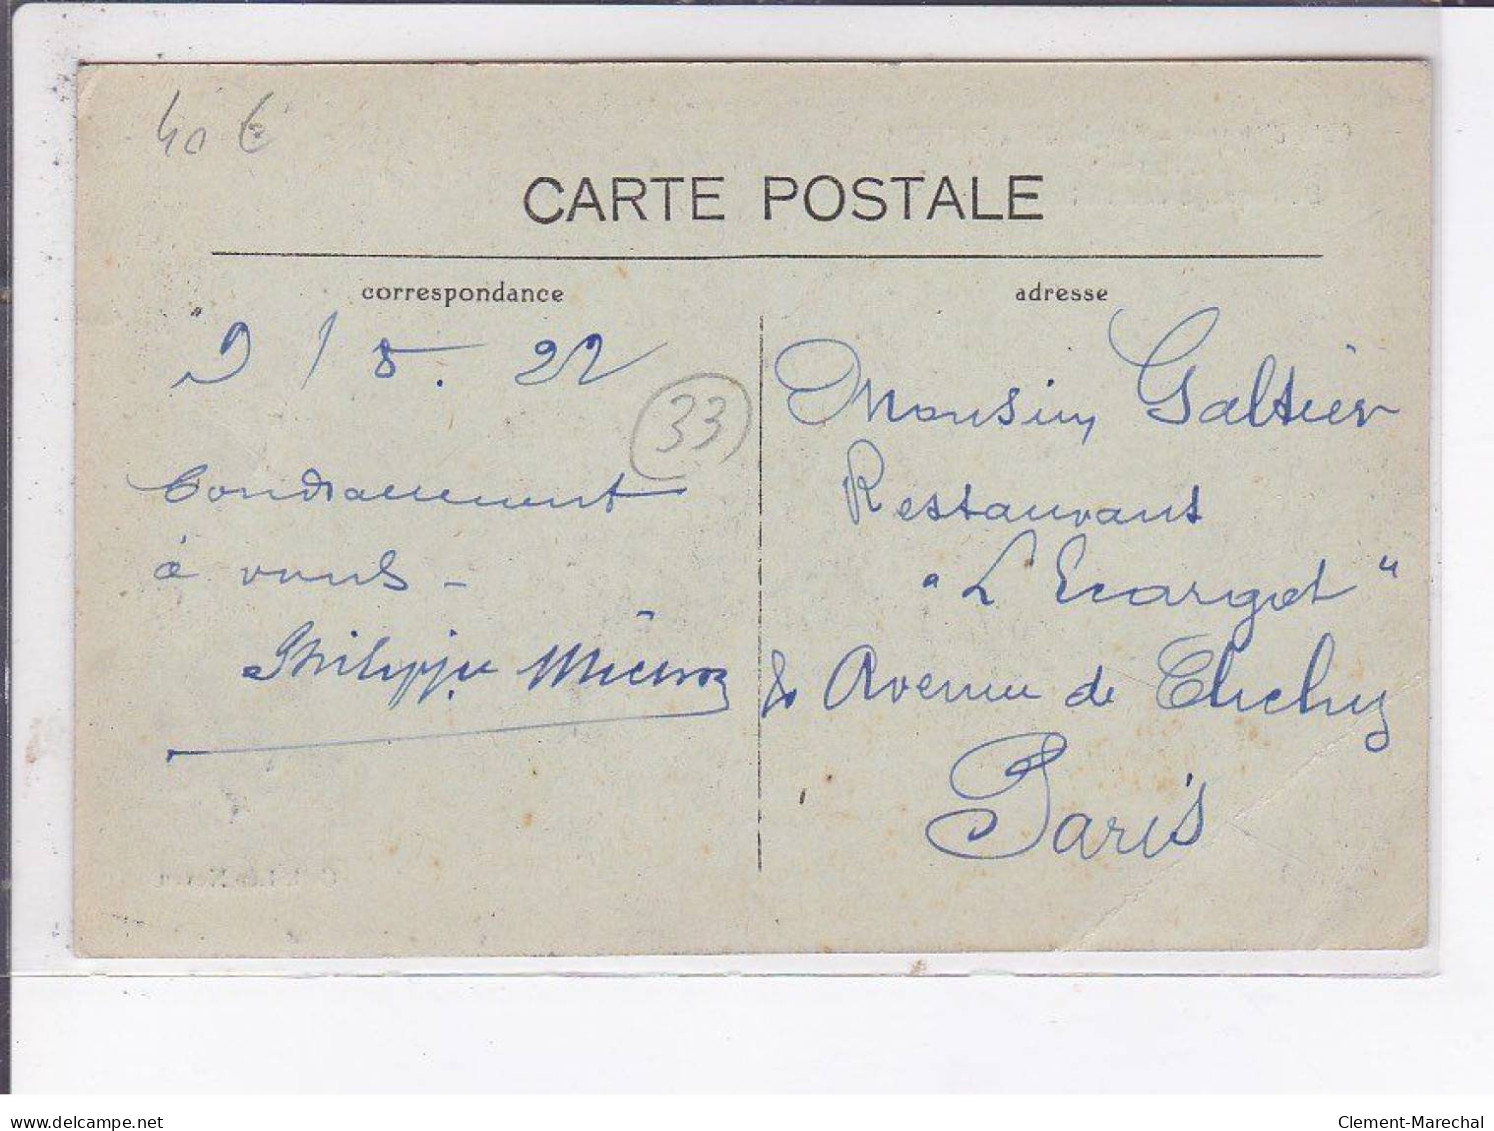 40 €
CARTE POSTALE
correspondance
adresse
2/8.22
33
à vous -
Philippe
Monsieur Galtier
Restaurant
"L'Escargot"
Avenue de Clichy
Paris
delcampe.net
Clement-Marechal